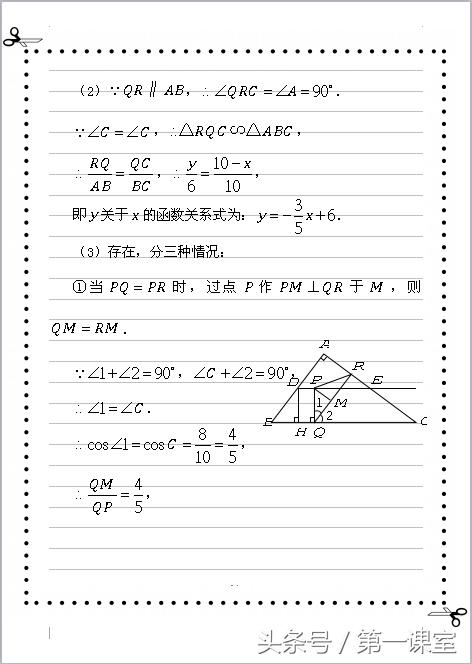 （2）∵QR∥AB，∴∠QRC=∠A=90°．
∵∠C=∠C，∴△RQC∽△ABC，
∴RQ/AB=QC/BC，∴y/6=(10-x)/10，
即y关于x的函数关系式为：y=-3/5x+6．
（3）存在，分三种情况：
①当PQ=PR时，过点P作PM⊥QR于M，则
QM=RM．
∵∠1+∠2=90°，∠C+∠2=90°，
∴∠1=∠C．
∴cos∠1=cosC=8/10=4/5，
∴QM/QP=4/5，
A
R
D P E
1 M
2
B H Q C
头条号／第一课室